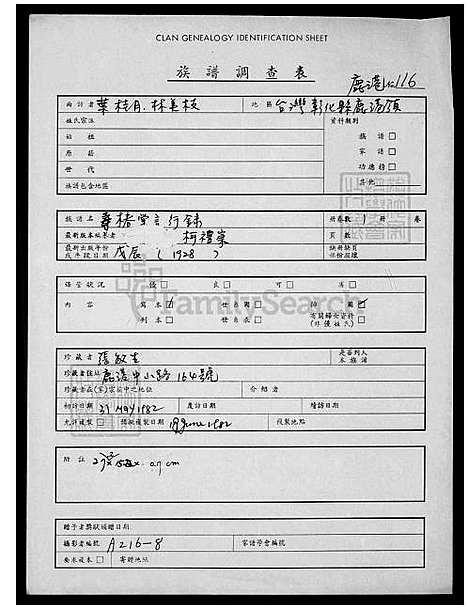 CLAN GENEALOGY IDENTIFICATION SHEET
族譜調查表
鹿港 116
面訪者 葉桂月.林美枝 地區 台灣彰化縣鹿港鎮
姓氏宗派 資料類別
始祖 族譜
原籍 家譜
世代 功德榜
族譜包含地區 其他
族譜名 堂言行錄 冊卷數 冊 卷
最新版本編著者 柯禮 頁數
最新出版年份或年段日期 戊辰 (1928) 缺冊缺頁保份損壞
保管狀況 優 良 可 劣
內容 寫本 世系圖 插圖
刊本 世系表 有關婦女資料(非僅姓氏)
FamilySearch
珍藏者 張敏生 是否列入本族譜
珍藏者住址 鹿港中山路164號
珍藏者在(家)宗族中之地位 介紹者
初訪日期 31 MAY 1982 度訪日期 續訪日期
允許複製 複製日期 19 June 1982 複製地點
附註 0.7 cm
贈予者獎狀頒贈日期
攝影者編號 A216-8 家譜學會編號
要求複本 寄贈地址